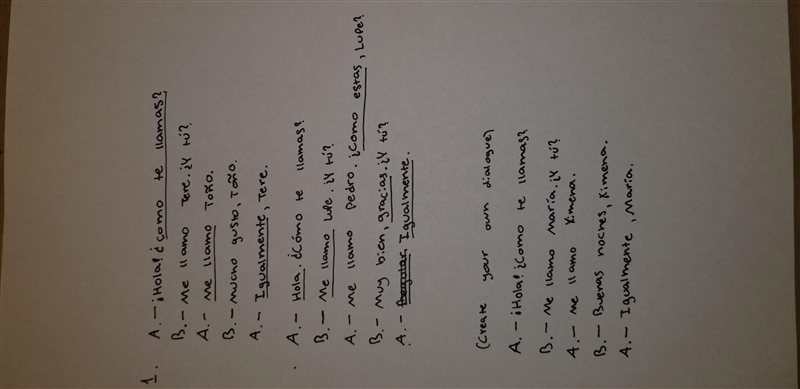 1. A.- ¡Hola! ¿como te llamas?
B.- Me llamo Tere. ¿Y tú?
A.- Me llamo Toño.
B.- Mucho gusto, Toño.
A.- Igualmente, Tere.
. A.- Hola. ¿Cómo te llamas?
B.- Me llamo Lupe. ¿Y tú?
A.- Me llamo Pedro. ¿Como estas, Lupe?
B.- Muy bien, gracias. ¿Y tú?
A.- Igualmente.
(Create your own dialogue)
A.- ¡Hola! ¿Como te llamas?
B.- Me llamo María. ¿Y tú?
A.- Me llamo Ximena.
B.- Buenas noches, Ximena.
A.- Igualmente, María.